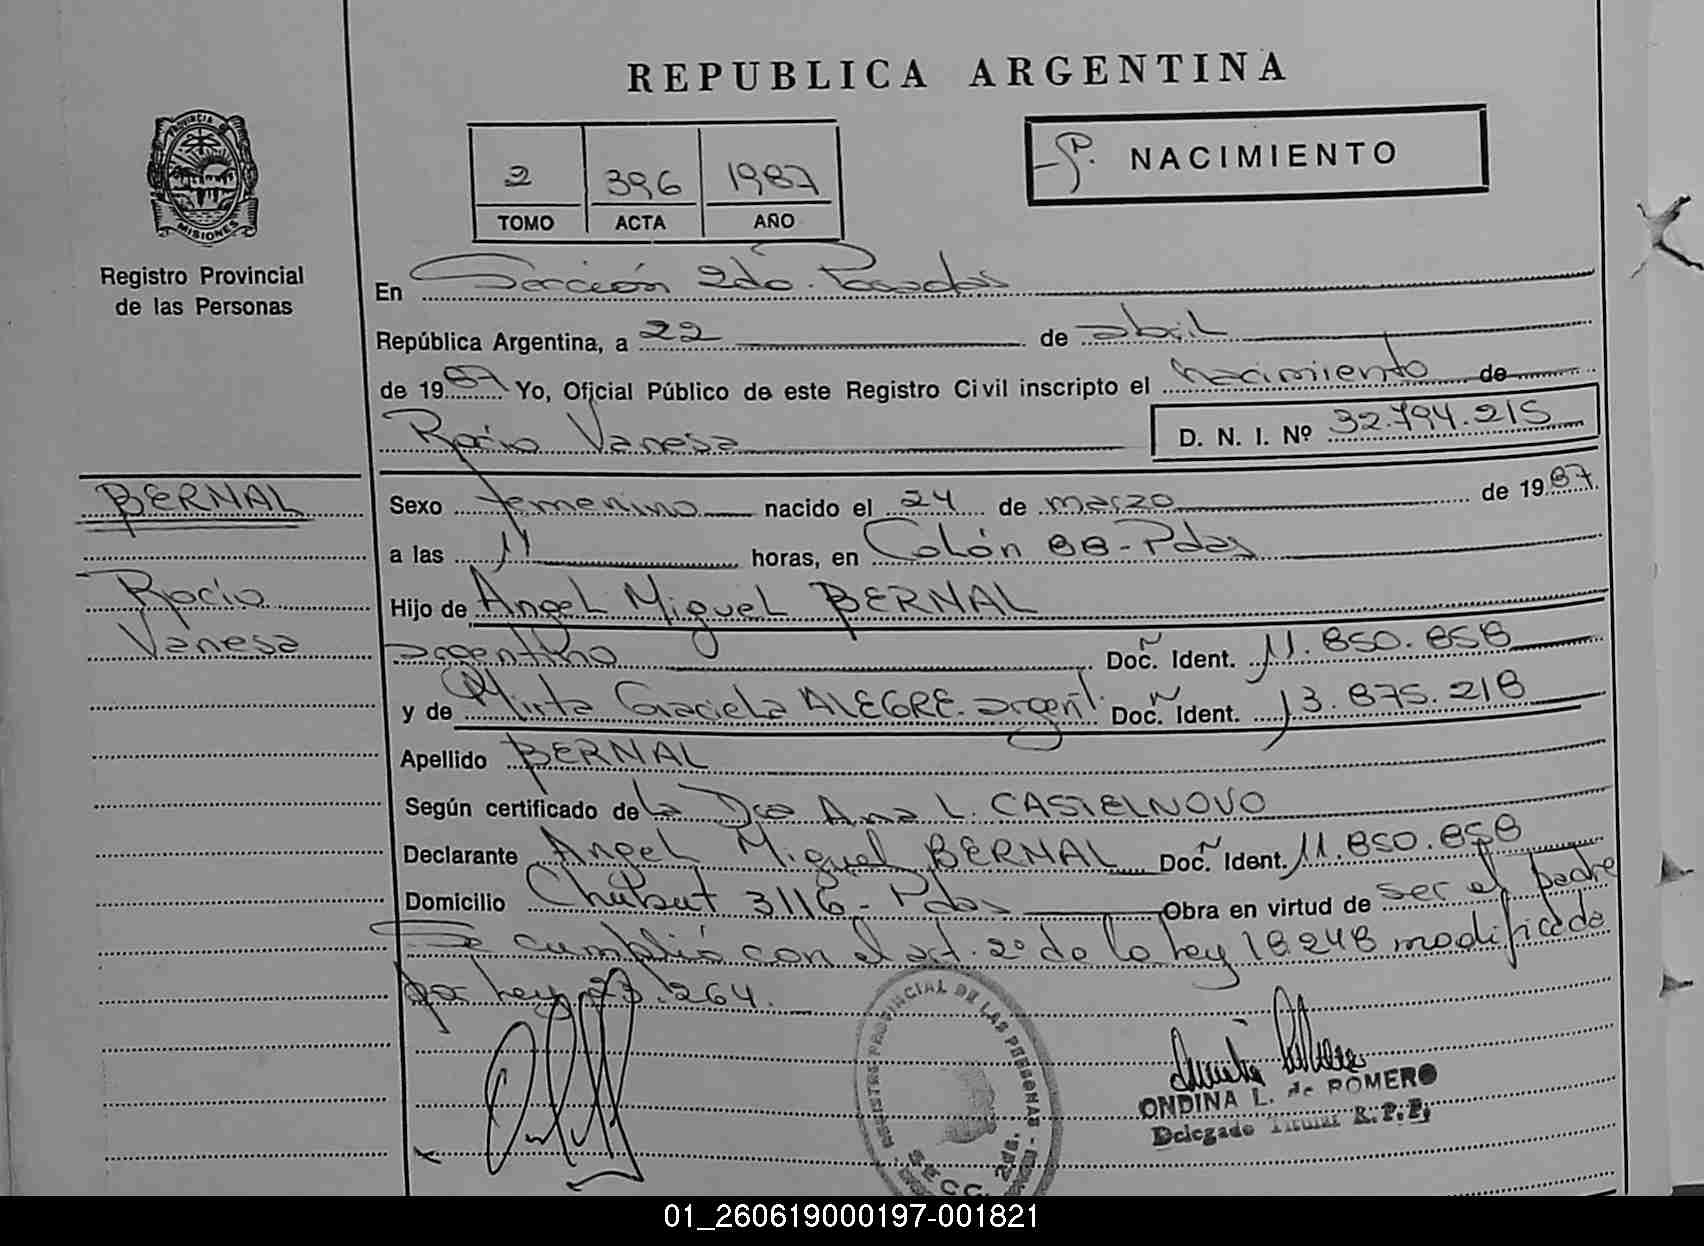 REPUBLICA ARGENTINA
PROVINCIA D
MISIONES
Registro Provincial
de las Personas
2 396 1987
TOMO ACTA AÑO
NACIMIENTO
En Sección 2da. Posadas
República Argentina, a 22 de abril
de 1987 Yo, Oficial Público de este Registro Civil inscripto el nacimiento de
Rocío Vanesa D. N. I. Nº 32.794.215
BERNAL
Rocío
Vanesa
Sexo femenino nacido el 24 de marzo de 1987
a las 11 horas, en Colón 88 - Pdas
Hijo de Angel Miguel BERNAL
argentino Doc. Ident. Ñ 11.850.858
y de Mirta Graciela ALEGRE. argent. Doc. Ident. Ñ 13.875.218
Apellido BERNAL
Según certificado de la Dra Ana L. CASTELNOVO
Declarante Angel Miguel BERNAL Doc. Ident. Ñ 11.850.858
Domicilio Chubut 3116 - Pdas Obra en virtud de ser el padre
Se cumplió con el art. 2º de la ley 18248 modificada
por ley 23.264.
REGISTRO PROVINCIAL DE LAS PERSONAS -
SECC. 2da.
ONDINA L. de ROMERO
Delegado Titular R.P.P.
01_260619000197-001821